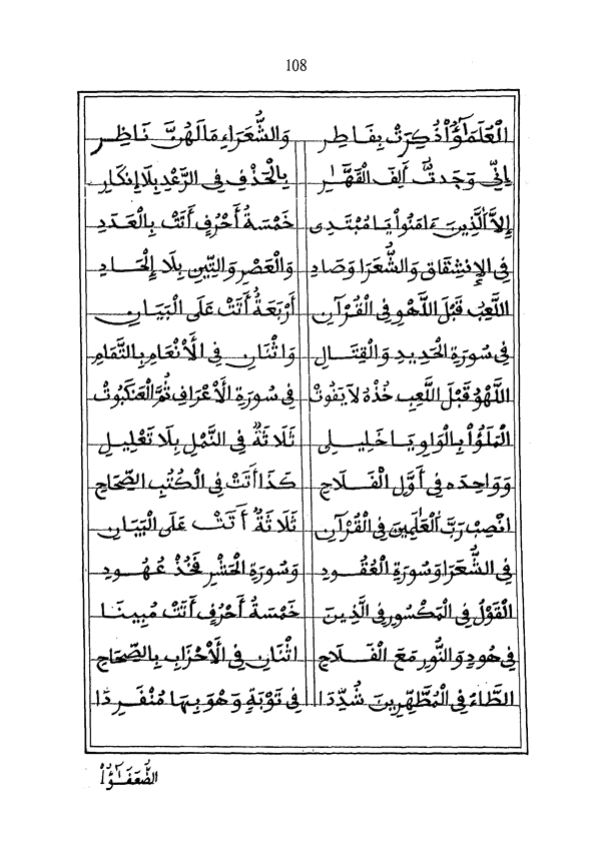 108
الْعُلَمَٰٓؤُاْ ذُكِرَتْ بِفَاطِرِ وَالشُّعَرَاءِ مَا لَهُنَّ نَاظِرِ
إِنِّي وَجَدتُّ أَلِفَ الْقَهَّٰرِ بِالْحَذْفِ فِي الرَّعْدِ بِلَا إِنْكَارِ
إِلاَّ الَّذِينَ ءَامَنُواْ يَا مُبْتَدِي خَمْسَةُ أَحْرُفٍ أَتَتْ بِالْعَدَدِ
فِي الْإِنْشِقَاقِ وَالشُّعَرَا وَصَادِ وَالْعَصْرِ وَالتِّينِ بِلَا إِلْحَادِ
اللَّعِبُ قَبْلَ اللَّهْوِ فِي الْقُرْآنِ أَرْبَعَةُ أَتَتْ عَلَى الْبَيَانِ
فِي سُورَةِ الْحَدِيدِ وَالْقِتَالِ وَاثْنَانِ فِي الْأَنْعَامِ بِالتَّمَامِ
اللَّهْوُ قَبْلَ اللَّعِبِ خُذْهُ لَا يَفُوتْ فِي سُورَةِ الْأَعْرَافِ ثُمَّ الْعَنْكَبُوتْ
الْمَلَؤُاْ بِالْوَاوِ يَا خَلِيلِي ثَلَاثَةٌ فِي النَّمْلِ بِلَا تَعْلِيلِ
وَوَاحِدَه فِي أَوَّلِ الْفَلَاحِ كَذَا أَتَتْ فِي الْكُتُبِ الصِّحَاحِ
انْصِبْ رَبَّ الْعَٰلَمِينَ فِي الْقُرْآنِ ثَلَاثَةٌ أَتَتْ عَلَى الْبَيَانِ
فِي الشُّعَرَا وَسُورَةِ الْعُقُودِ وَسُورَةِ الْحَشْرِ فَخُذْ عُهُودِ
الْقَوْلُ فِي الْمَكْسُورِ فِي الَّذِينَ خَمْسَةُ أَحْرُفٍ أَتَتْ مُبِينَا
فِي هُودٍ وَالنُّورِ مَعَ الْفَلَاحِ اثْنَانِ فِي الْأَحْزَابِ بِالصِّحَاحِ
الطَّاءُ فِي الْمُطَّهِّرِينَ شُدِّدَا فِي تَوْبَةٍ وَهْوَ بِهَا مُنْفَرِدَا
الضُّعَفَٰٓؤُاْ